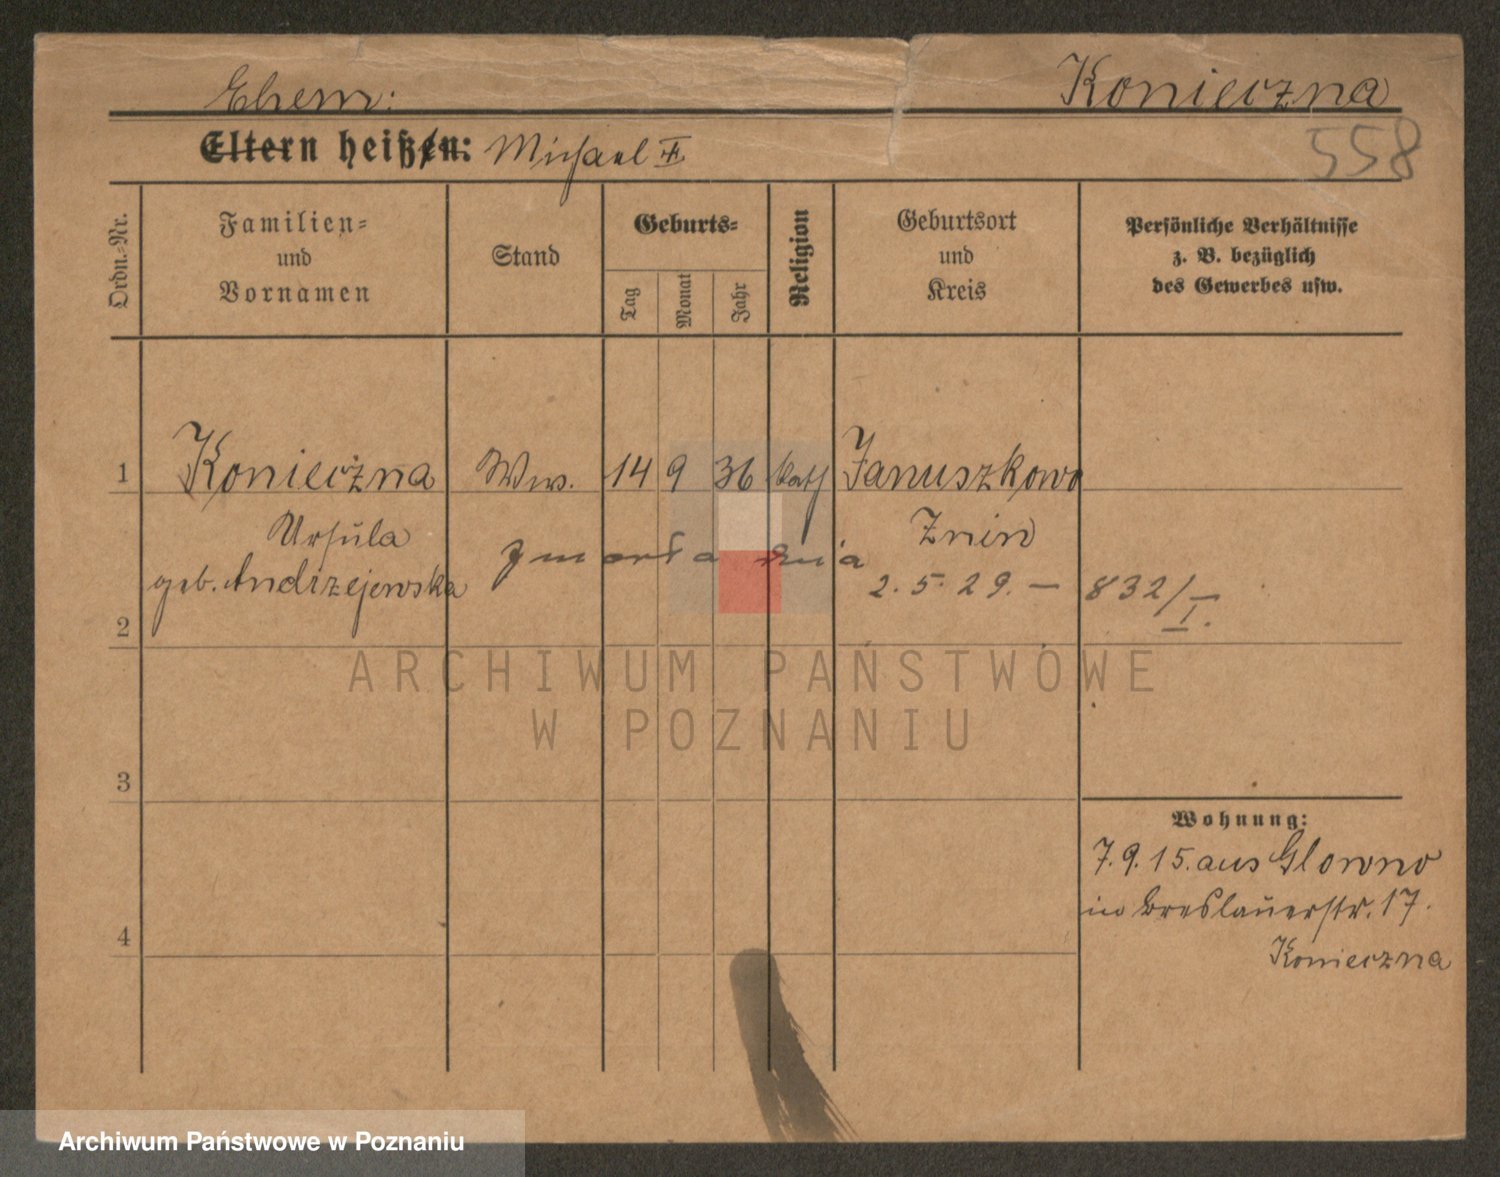 Ehem: Konieczna
Eltern heißen: Michael ‡
558
Ordn.-Nr.
Familien-
und
Vornamen
Stand
Geburts-
Tag
Monat
Jahr
Religion
Geburtsort
und
Kreis
Persönliche Verhältnisse
z. B. bezüglich
des Gewerbes usw.
1 Konieczna Ww. 14 9 36 kath Januszkowo
Ursula Znin
zmarła dnia
geb. Andrzejewska 2.5.29. — 832/I.
2
ARCHIWUM PAŃSTWOWE
W POZNANIU
3
Wohnung:
7.9.15. aus Glowno
in Breslauerstr. 17.
4
Konieczna
Archiwum Państwowe w Poznaniu